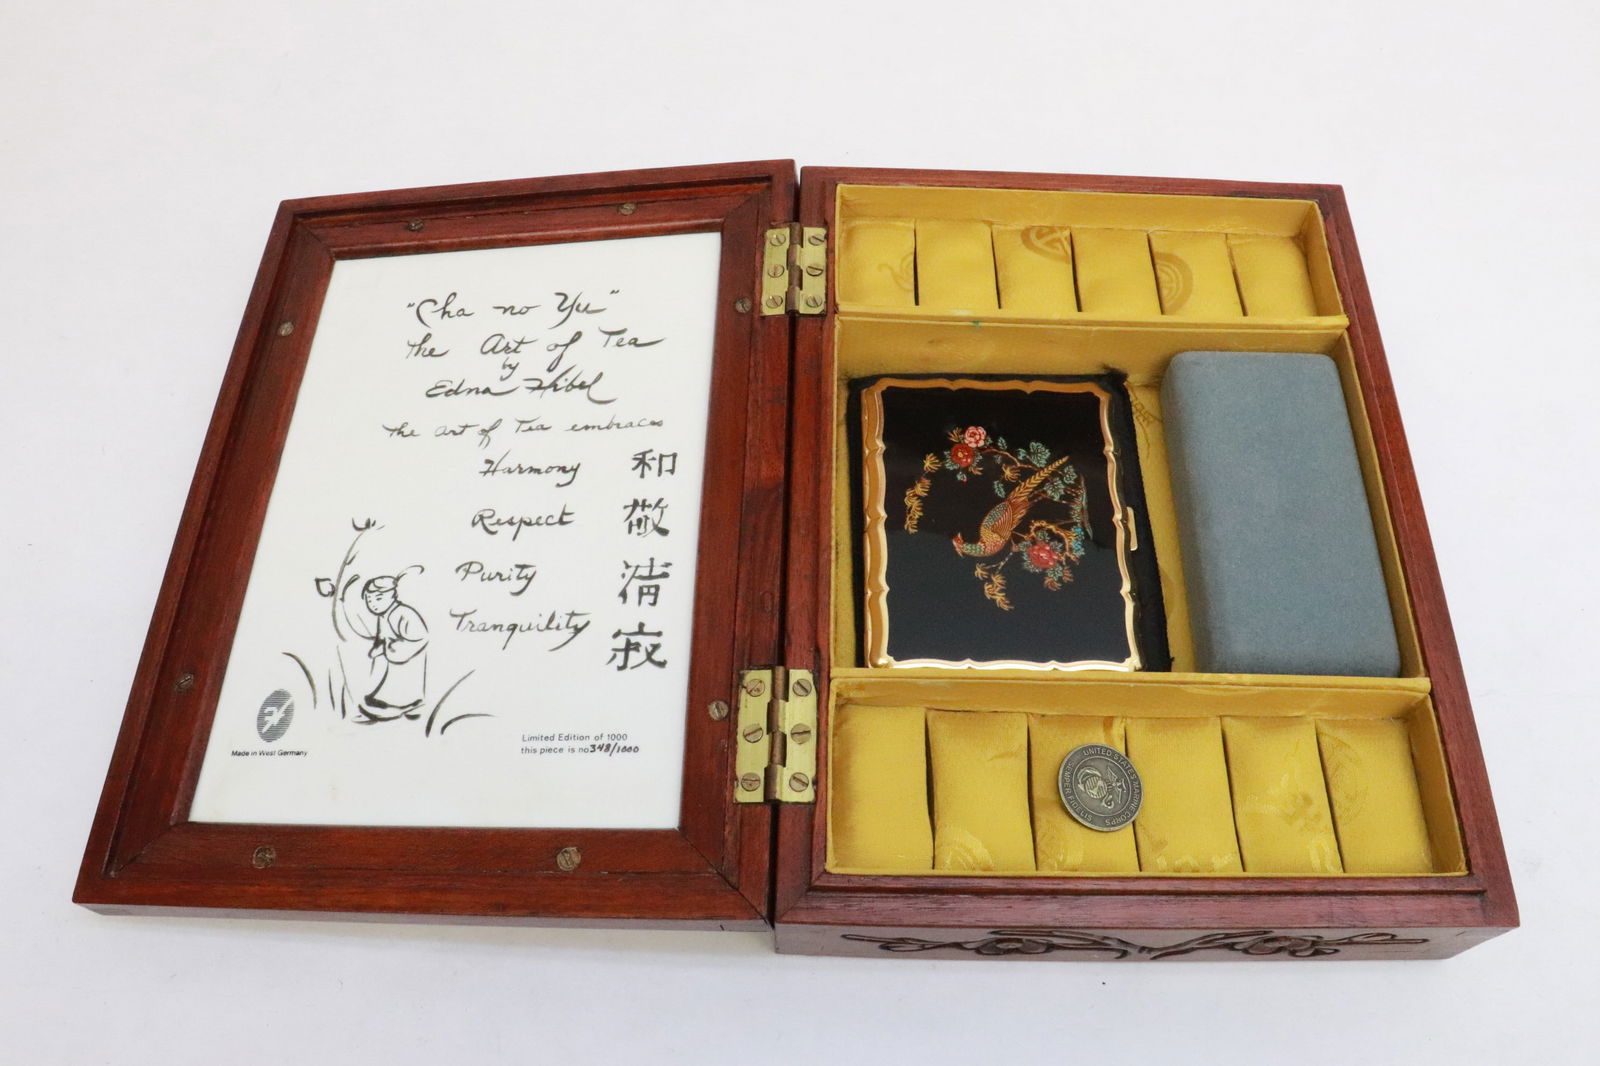 "Cha no Yu"
The Art of Tea
by
Edna Hibel
The art of Tea embraces
Harmony 和
Respect 敬
Purity 清
Tranquility 寂
Made in West Germany
Limited Edition of 1000
this piece is no 348/1000
UNITED STATES MARINE CORPS
SEMPER FIDELIS